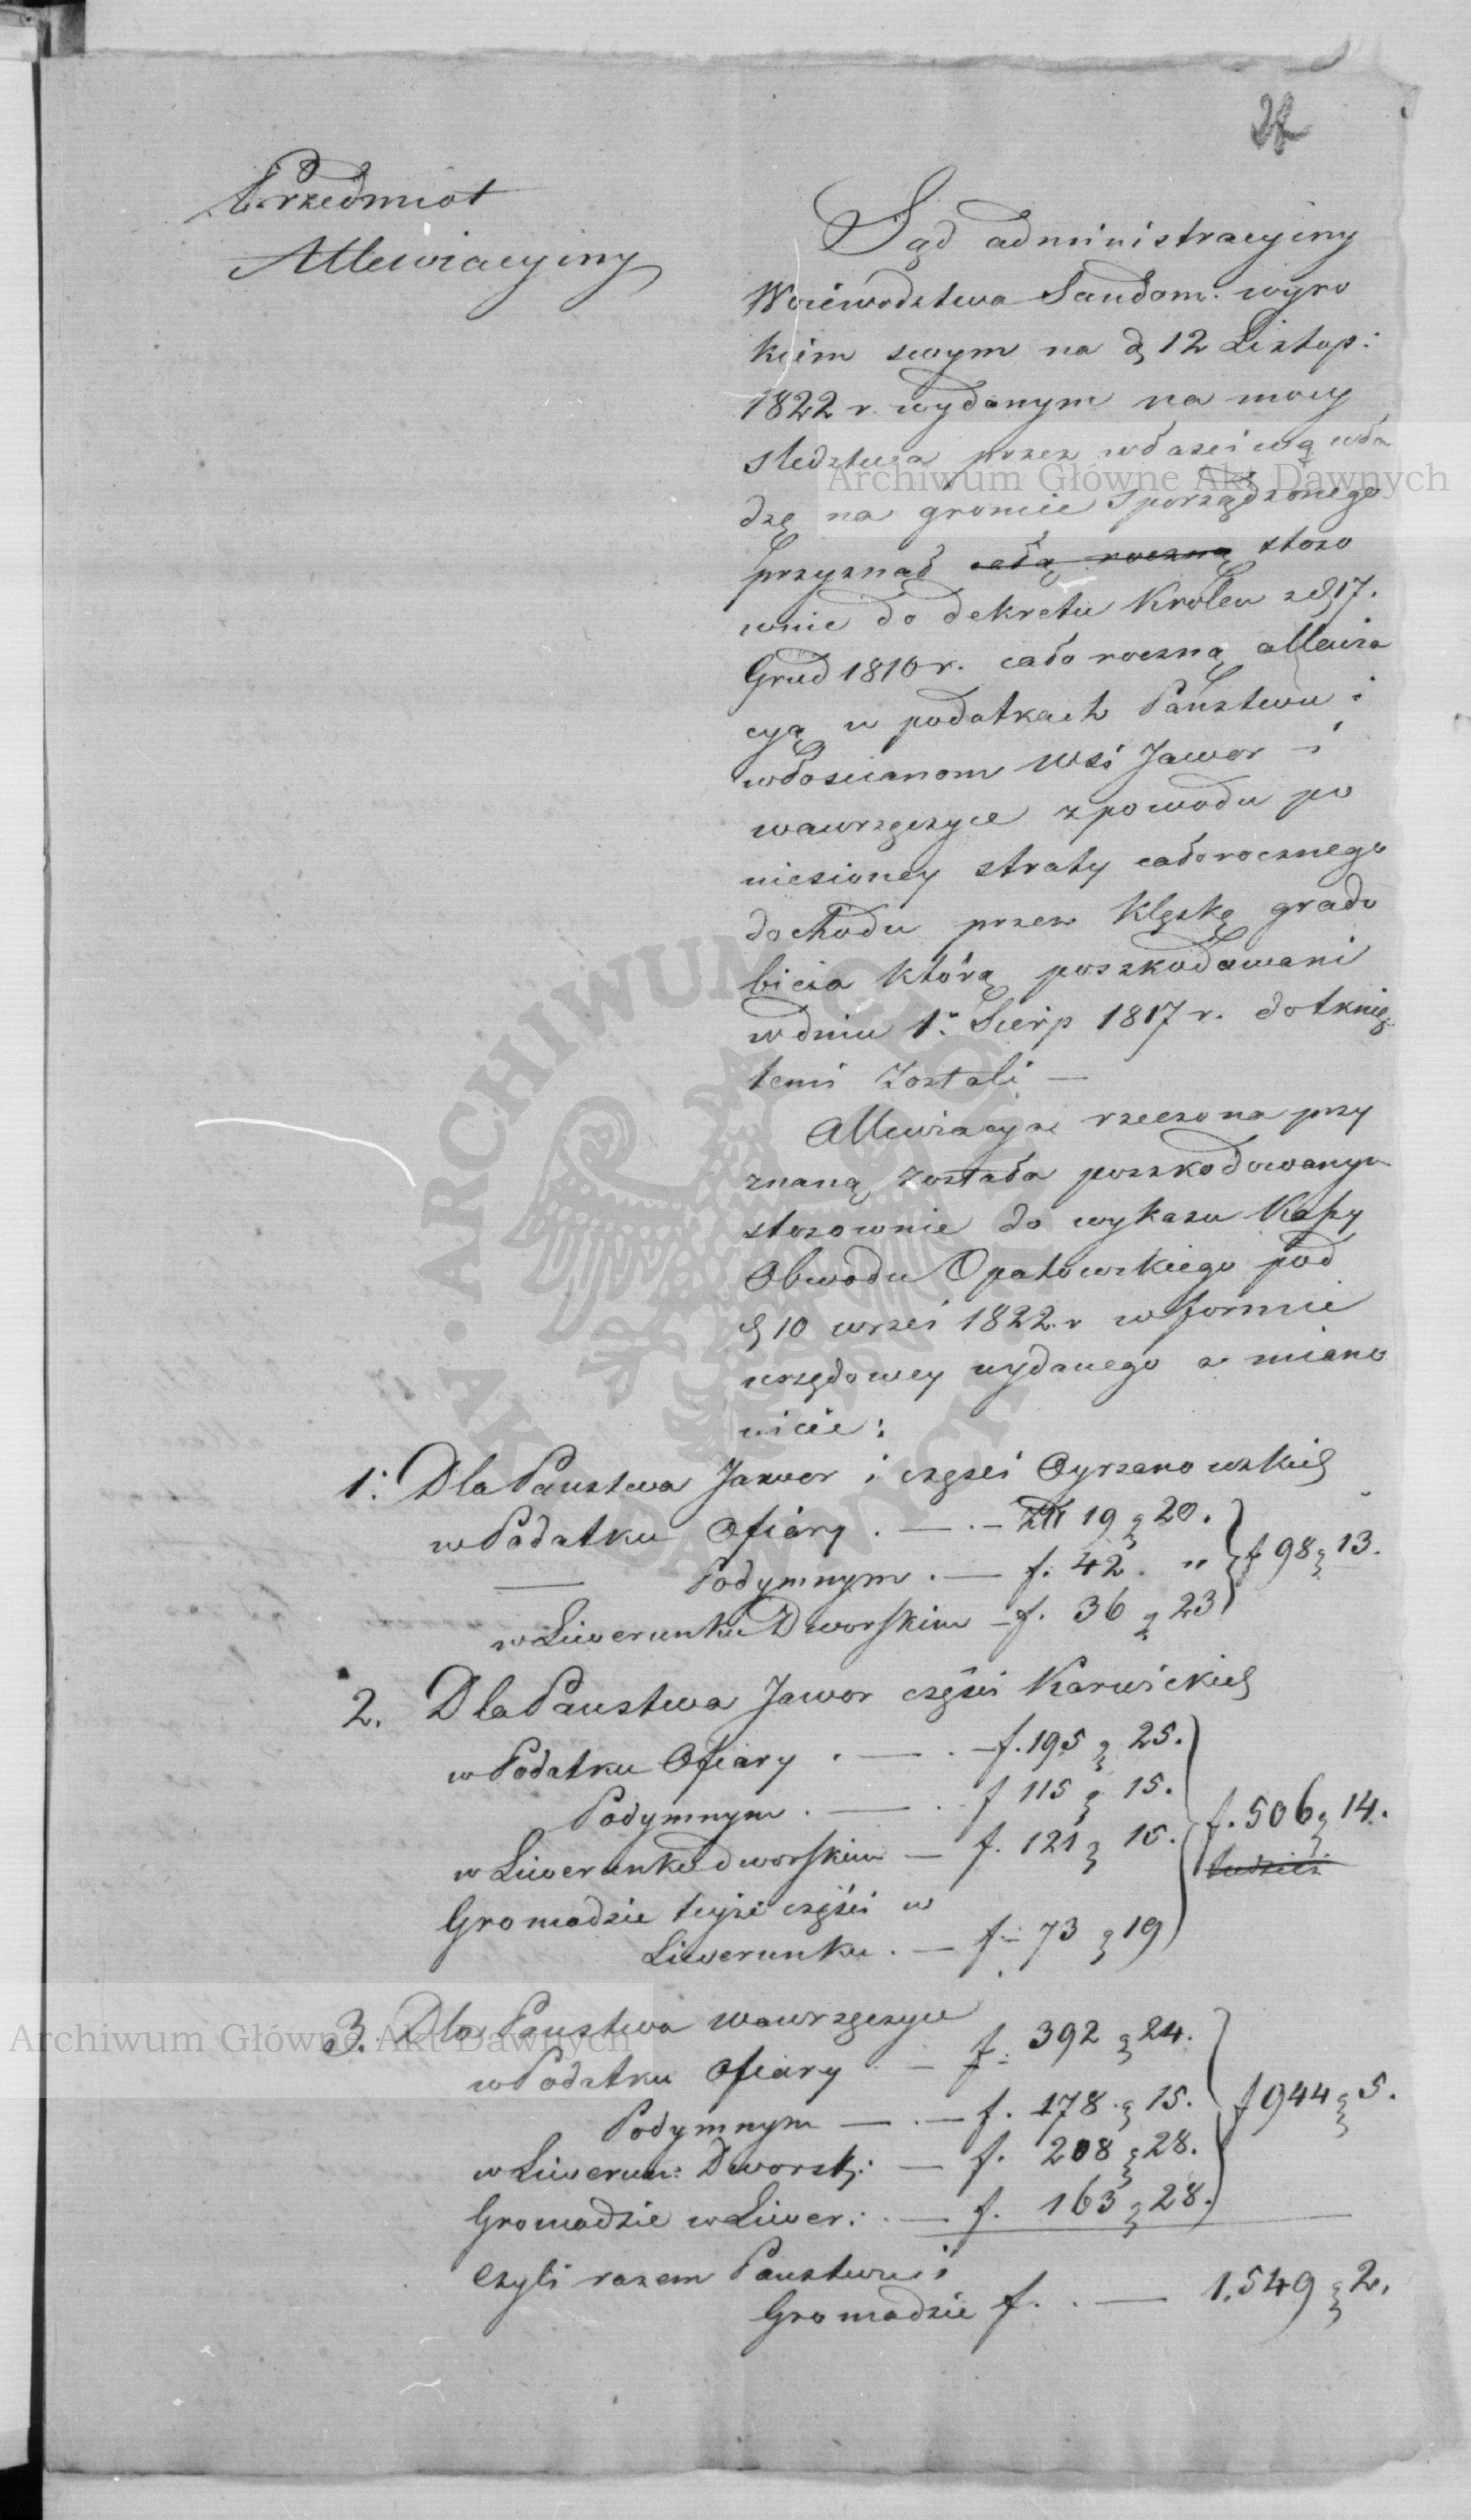 Przedmiot
Allewiacyiny
Sąd administracyiny
Woiewodztwa Sandom. wyro
kiem swym na d 12 Listop:
1822 r. wydanym na mocy
sledztwa przez właściwą wła
dzę na gruncie sporządzonego
przyznał całą roczną stoso
wnie do dekretu Królew z d 17.
Grud 1810 r. cało roczną allewia
cyą w podatkach Państwu i
włoscianom Wsi Jawor i
wawrzęczyce z powodu po
niesioney straty całorocznego
dochodu przez klęskę grado
bicia którą poszkodowani
w dniu 1: Sierp 1817 r. dotknię
temi zostali —
Allewiacya rzeczona przy
znaną została poszkodowanym
stosownie do wykazu Kassy
Obwodu Opatowskiego pod
d 10 wrześ 1822 r w formie
urzędowey wydanego a miano
wicie:
1. Dla Panstwa Jawor i częsci Cyrzanowskich
w Podatku Ofiary . — . — Złł 19 g 20.
— Podymnym . — f. 42. "
w Liwerunku Dworskim — f. 36 g 23
f 98 g 13.
2. Dla Panstwa Jawor częśći Karwickich
w Podatku Ofiary . — . — f. 195 g 25.
Podymnym . — . f 115 g 15.
w Liwerunku dworskim — f. 121 g 15.
f. 506 g 14.
Gromadzie teyże części w
Liwerunku . — f. 73 g 19
3. Dla Panstwa Wawrzęczyce
w Podatku Ofiary . — f. 392 g 24.
Podymnym — . — f. 178 g 15.
f 944 g 5.
w Liwerun: Dworsk: — f. 208 g 28.
Gromadzie w Liwer: . — f. 163 g 28.
Czyli razem Panstwu i
Gromadzie f. . — 1,549 g 2.
Archiwum Główne Akt Dawnych
Archiwum Główne Akt Dawnych
ARCHIWUM GŁÓWNE AKT DAWNYCH